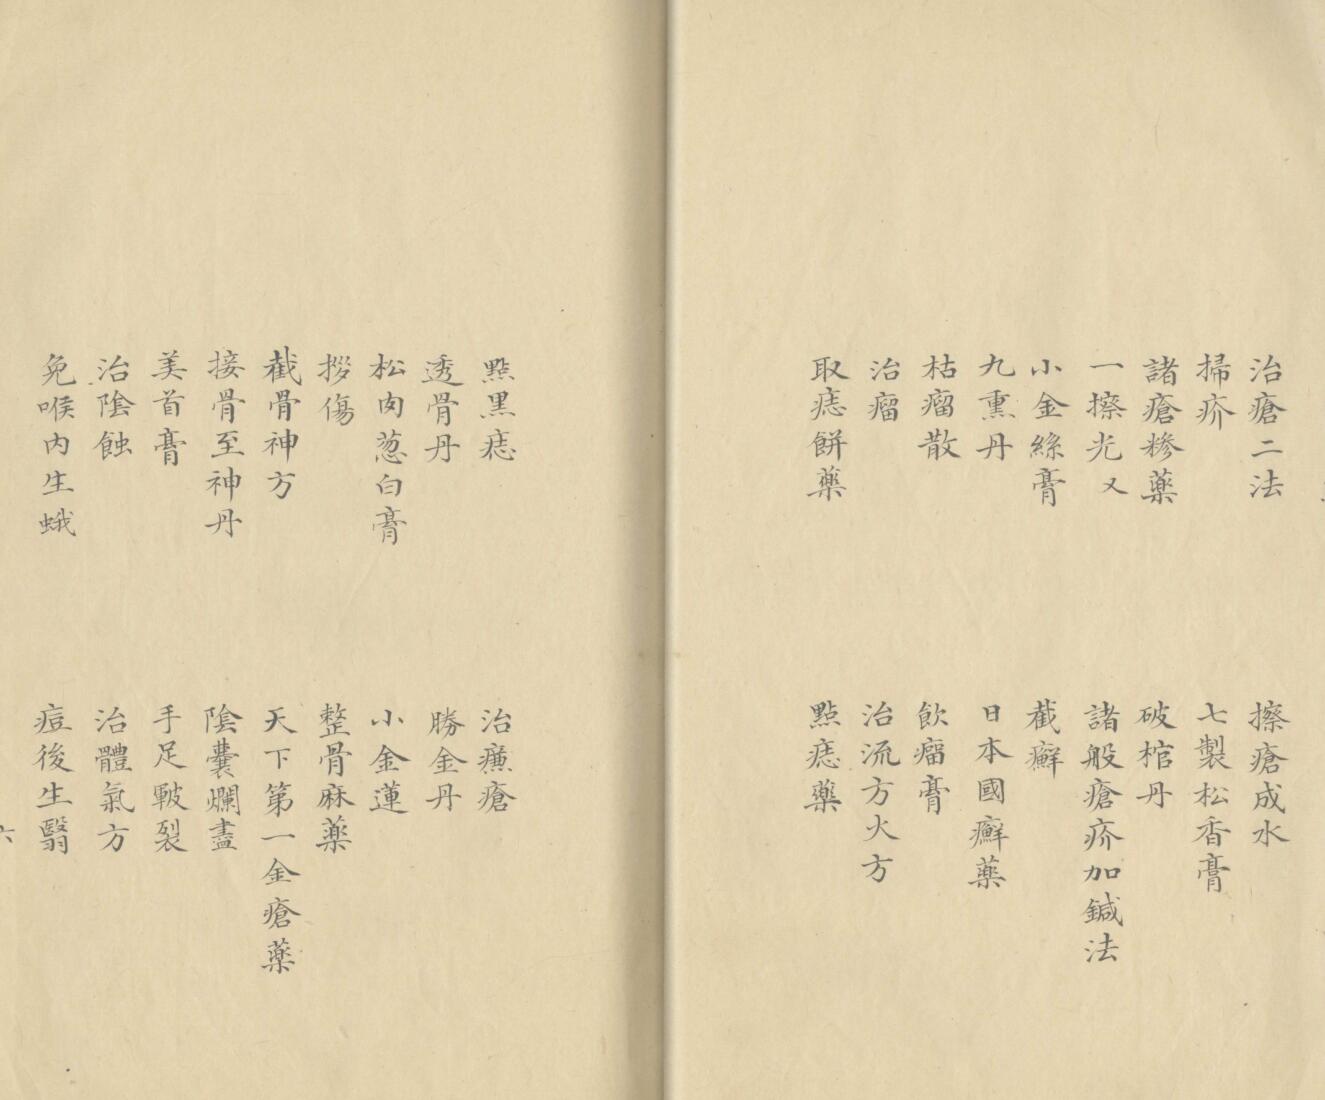 治瘡二法
擦瘡成水
掃疥
七製松香膏
諸瘡糝藥
破棺丹
一擦光又
諸般瘡疥加鍼法
小金絲膏
截癬
九熏丹
日本國癬藥
枯瘤散
飲瘤膏
治瘤
治流方火方
取痣餅藥
點痣藥
點黑痣
治㾾瘡
透骨丹
勝金丹
松肉葱白膏
小金蓮
拶傷
整骨麻藥
截骨神方
天下第一金瘡藥
接骨至神丹
陰囊爛盡
美首膏
手足皸裂
治陰蝕
治體氣方
兔喉內生蛾
痘後生翳
六